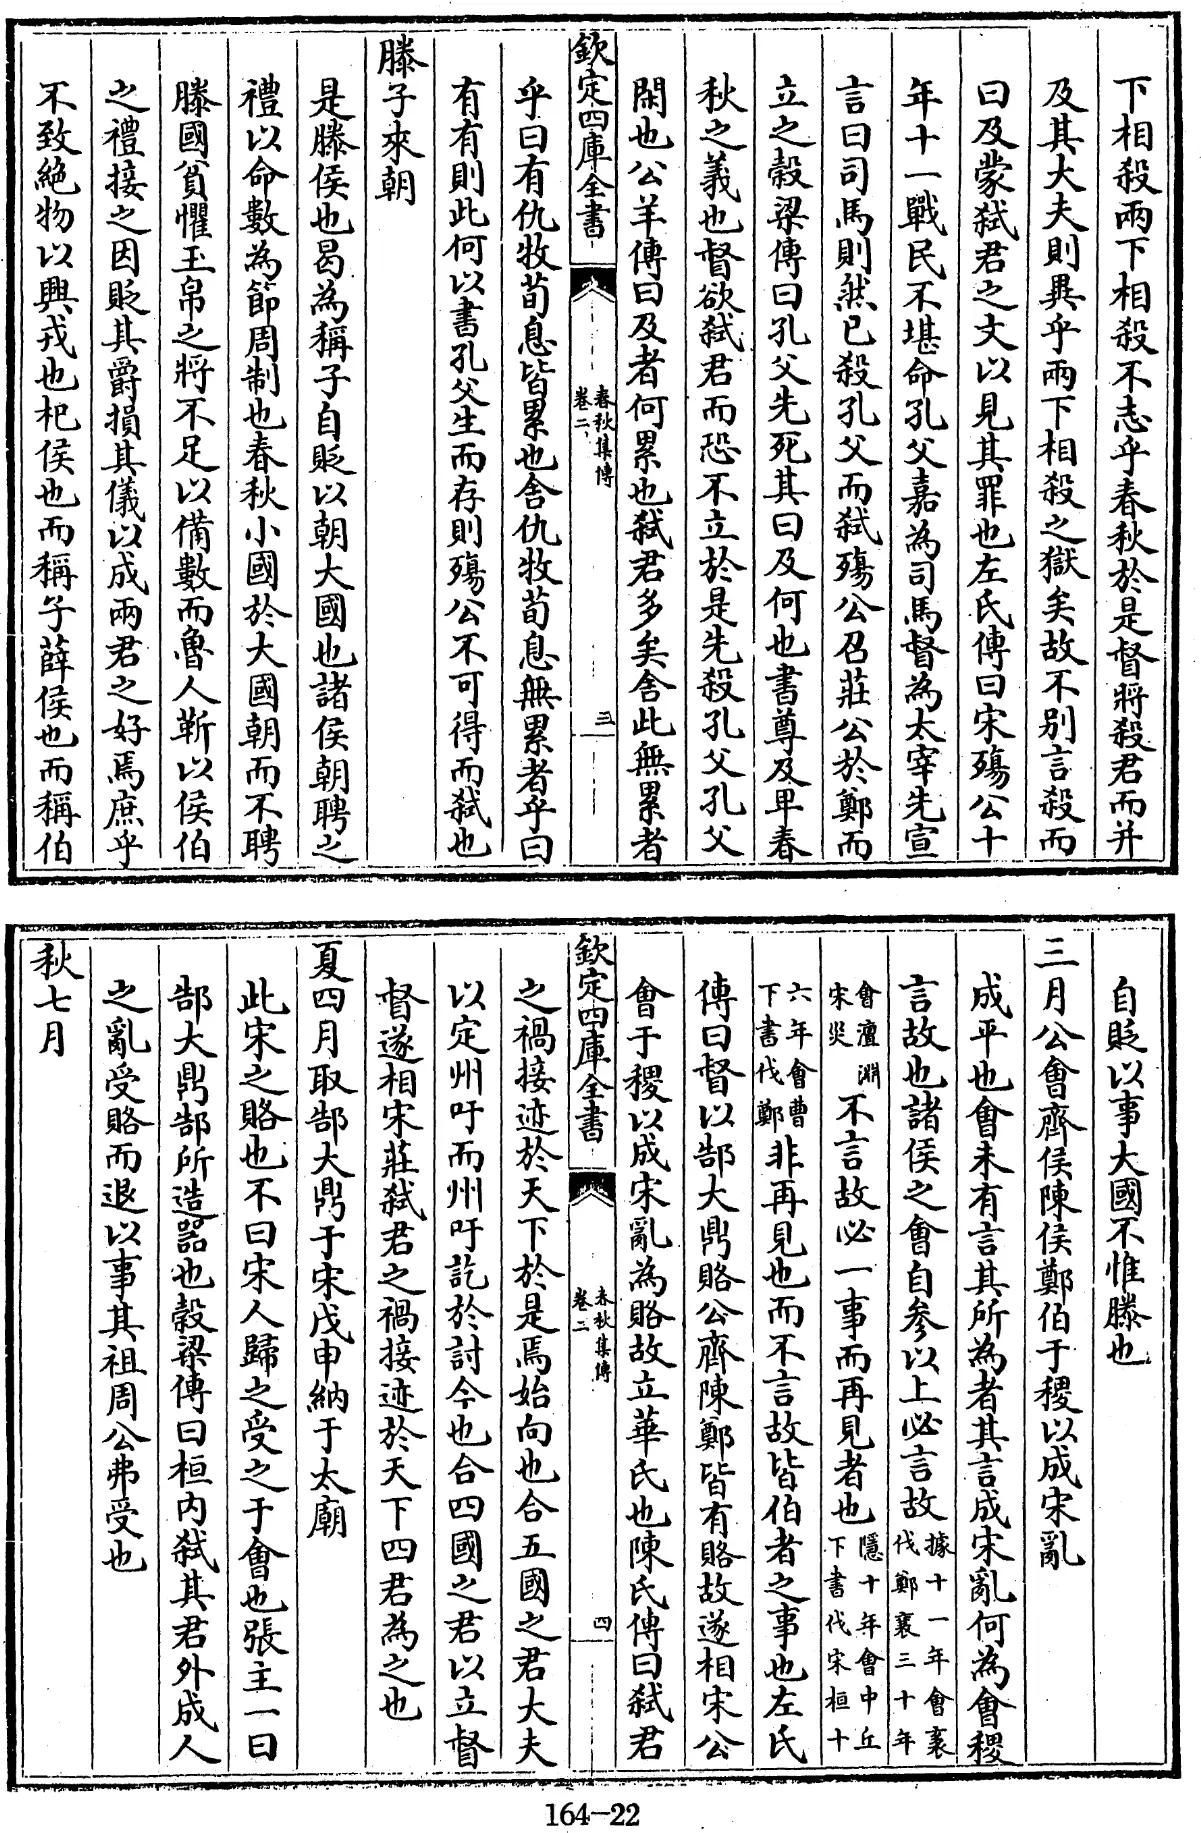 下相殺兩下相殺不志乎春秋於是督將殺君而并
及其大夫則異乎兩下相殺之獄矣故不别言殺而
曰及蒙弑君之文以見其罪也左氏傳曰宋殤公十
年十一戰民不堪命孔父嘉為司馬督為太宰先宣
言曰司馬則然已殺孔父而弑殤公召莊公於鄭而
立之穀梁傳曰孔父先死其曰及何也書尊及卑春
秋之義也督欲弑君而恐不立於是先殺孔父孔父
閑也公羊傳曰及者何累也弑君多矣舍此無累者
欽定四庫全書
春秋集傳
卷二
三
乎曰有仇牧荀息皆累也舍仇牧荀息無累者乎曰
有有則此何以書孔父生而存則殤公不可得而弑也
滕子來朝
是滕侯也曷為稱子自貶以朝大國也諸侯朝聘之
禮以命數為節周制也春秋小國於大國朝而不聘
滕國貧懼玉帛之將不足以備數而魯人靳以侯伯
之禮接之因貶其爵損其儀以成兩君之好焉庶乎
不致絶物以興戎也杞侯也而稱子薛侯也而稱伯
自貶以事大國不惟滕也
三月公會齊侯陳侯鄭伯于稷以成宋亂
成平也會未有言其所為者其言成宋亂何為會稷
言故也諸侯之會自參以上必言故據十一年會袤伐鄭襄三十年
會澶淵宋災不言故必一事而再見者也隱十年會中丘下書伐宋桓十
六年會曹下書伐鄭非再見也而不言故皆伯者之事也左氏
傳曰督以郜大鼎賂公齊陳鄭皆有賂故遂相宋公
會于稷以成宋亂為賂故立華氏也陳氏傳曰弑君
欽定四庫全書
春秋集傳
卷二
四
之禍接迹於天下於是焉始向也合五國之君大夫
以定州吁而州吁訖於討今也合四國之君以立督
督遂相宋莊弑君之禍接迹於天下四君為之也
夏四月取郜大鼎于宋戊申納于太廟
此宋之賂也不曰宋人歸之受之于會也張主一曰
郜大鼎郜所造器也穀梁傳曰桓内弑其君外成人
之亂受賂而退以事其祖周公弗受也
秋七月
164-22